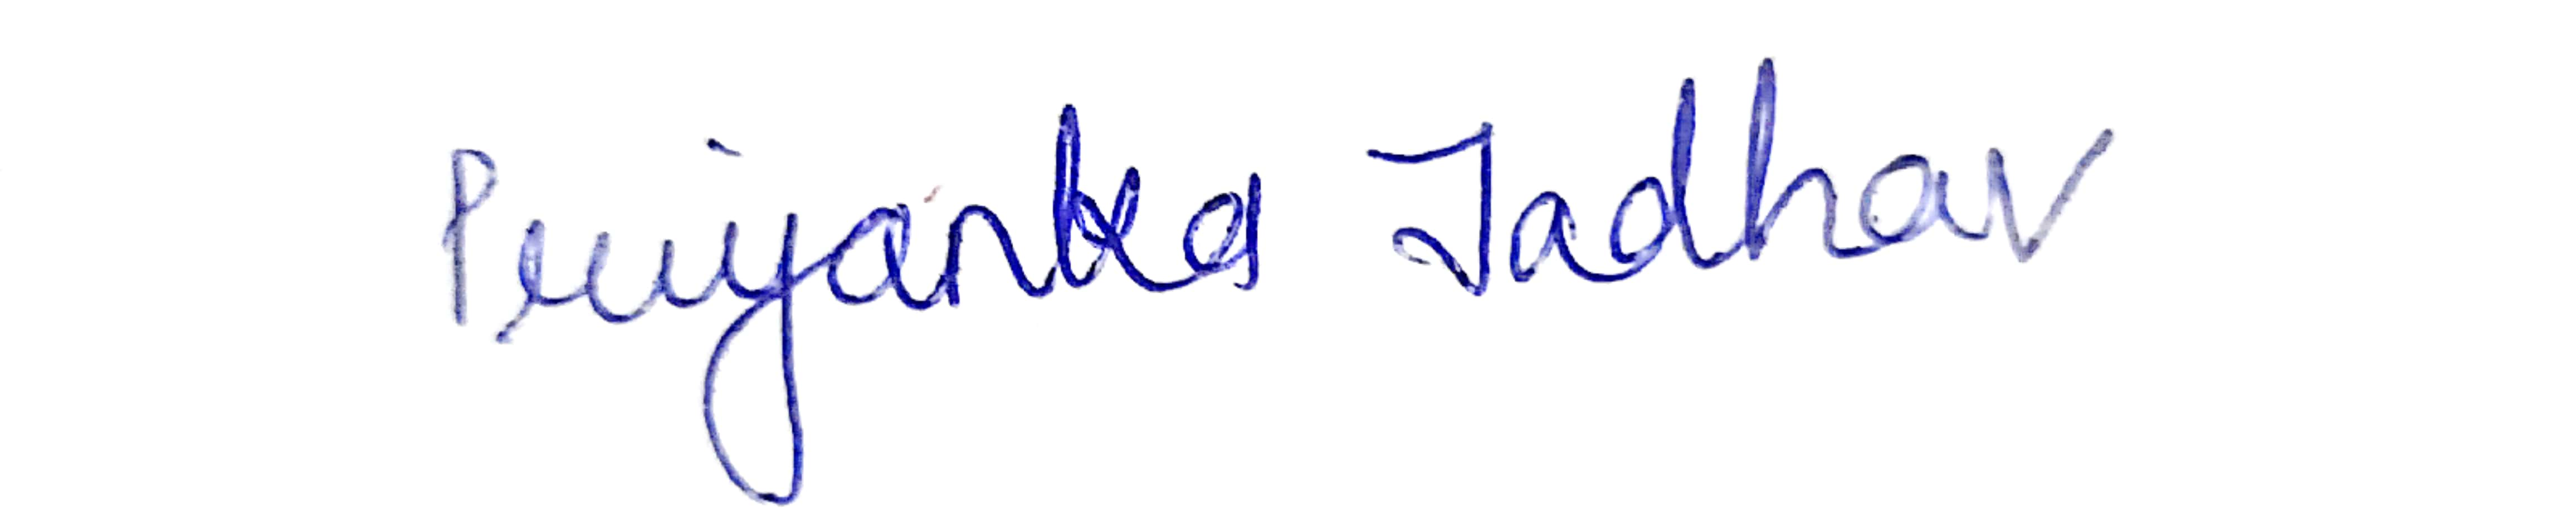 Priyanka Jadhav